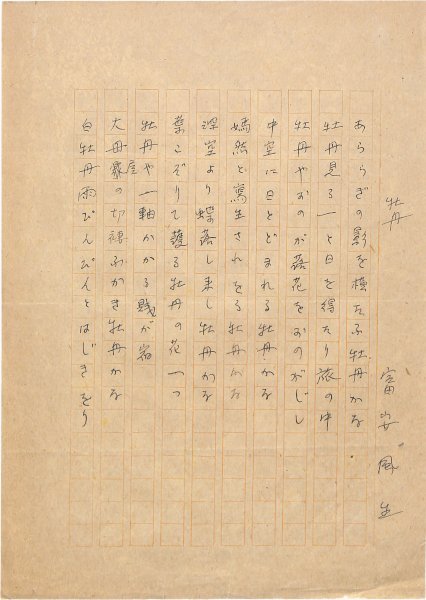 牡丹
富安風生
あららぎの影を横たふ牡丹かな
牡丹見る一と日を得たり旅の中
牡丹やおのが落花をおのがじし
中空に日とどまれる牡丹かな
嫣然と写生されをる牡丹かな
深空より蝶落し来し牡丹かな
葉こぞりて護る牡丹の花一つ
牡丹や一軸かかる賤が宿
大母家屋の切裾ふかき牡丹かな
白牡丹雨びんびんとはじきをり